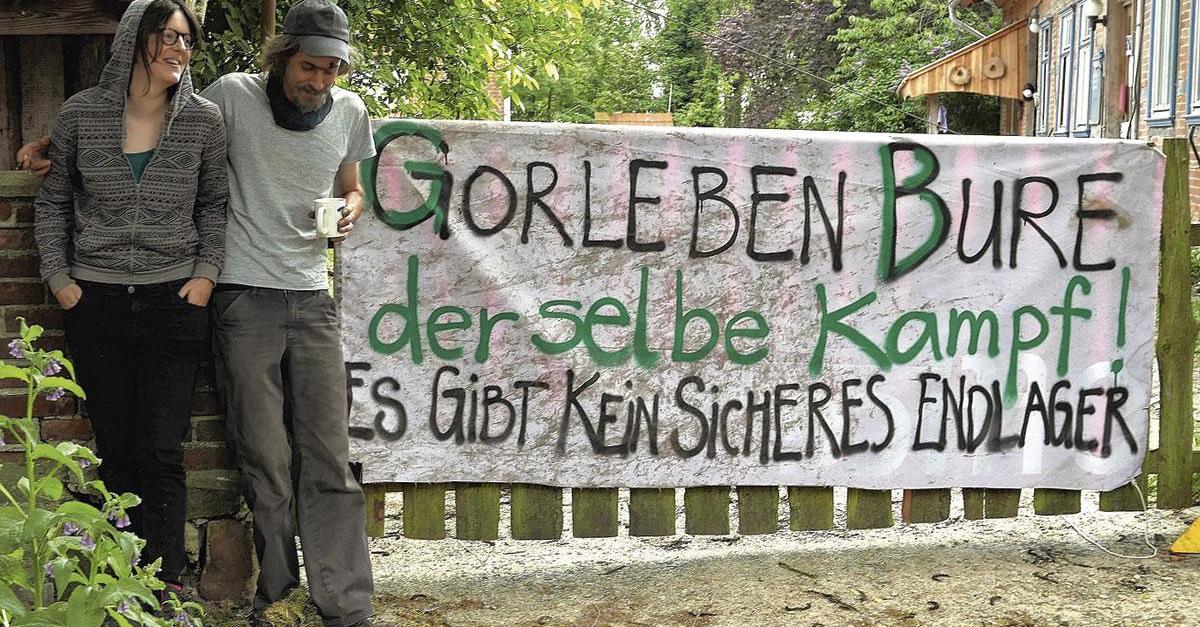 GORLEBEN BURE
derselbe Kampf!
ES GIBT KEIN SICHERES ENDLAGER